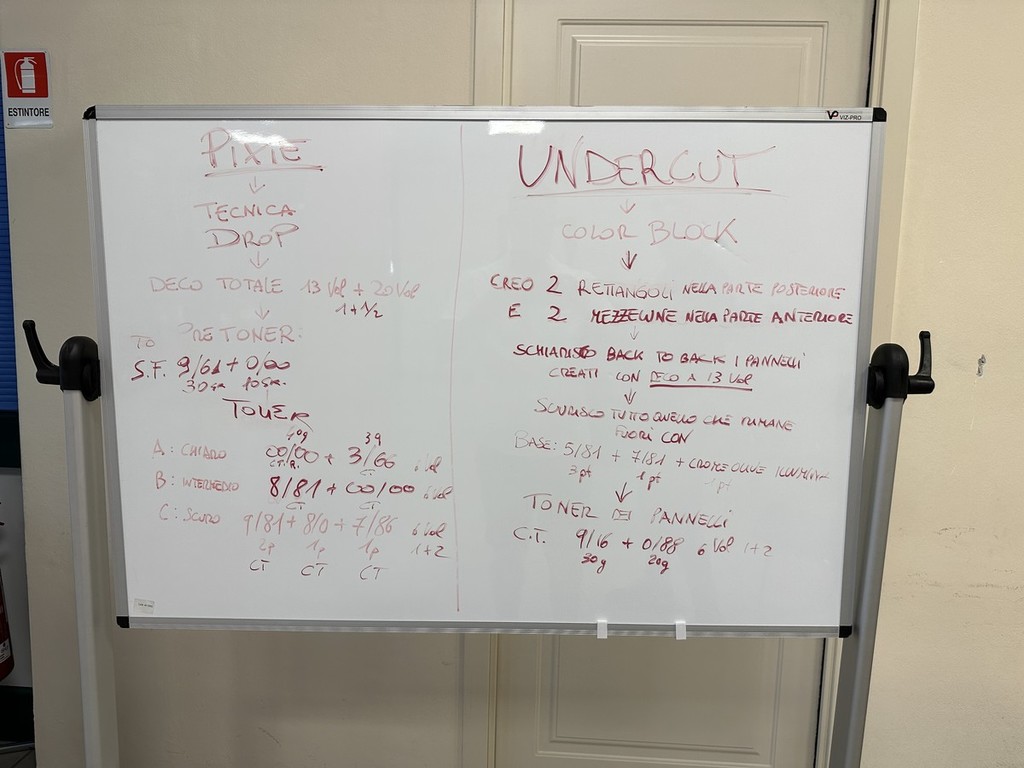 ESTINTORE
VIZ-PRO
PIXIE
TECNICA
DROP
DECO TOTALE 13 Vol + 20 Vol
1+1/2
TO PRETONER:
S.F. 9/61 + 0/00
30gr 10gr.
TONER
10g 3g
A: CHIARO 00/00 + 3/66 6 Vol
CT CT
B: INTERMEDIO 8/81 + 00/00 6 Vol
CT CT
C: SCURO 9/81 + 8/0 + 7/86 6 Vol
2p 1p 1p 1+2
CT CT CT
UNDERCUT
COLOR BLOCK
CREO 2 RETTANGOLI NELLA PARTE POSTERIORE
E 2 MEZZELUNE NELLA PARTE ANTERIORE
SCHIARISCO BACK TO BACK I PANNELLI
CREATI CON DECO A 13 Vol
SCURISCO TUTTO QUELLO CHE RIMANE
FUORI CON
BASE: 5/81 + 7/81 + CROMEOLIVE ILLUMINA
3pt 1pt 1pt
TONER DEI PANNELLI
C.T. 9/16 + 0/88 6 Vol 1+2
30g 20g